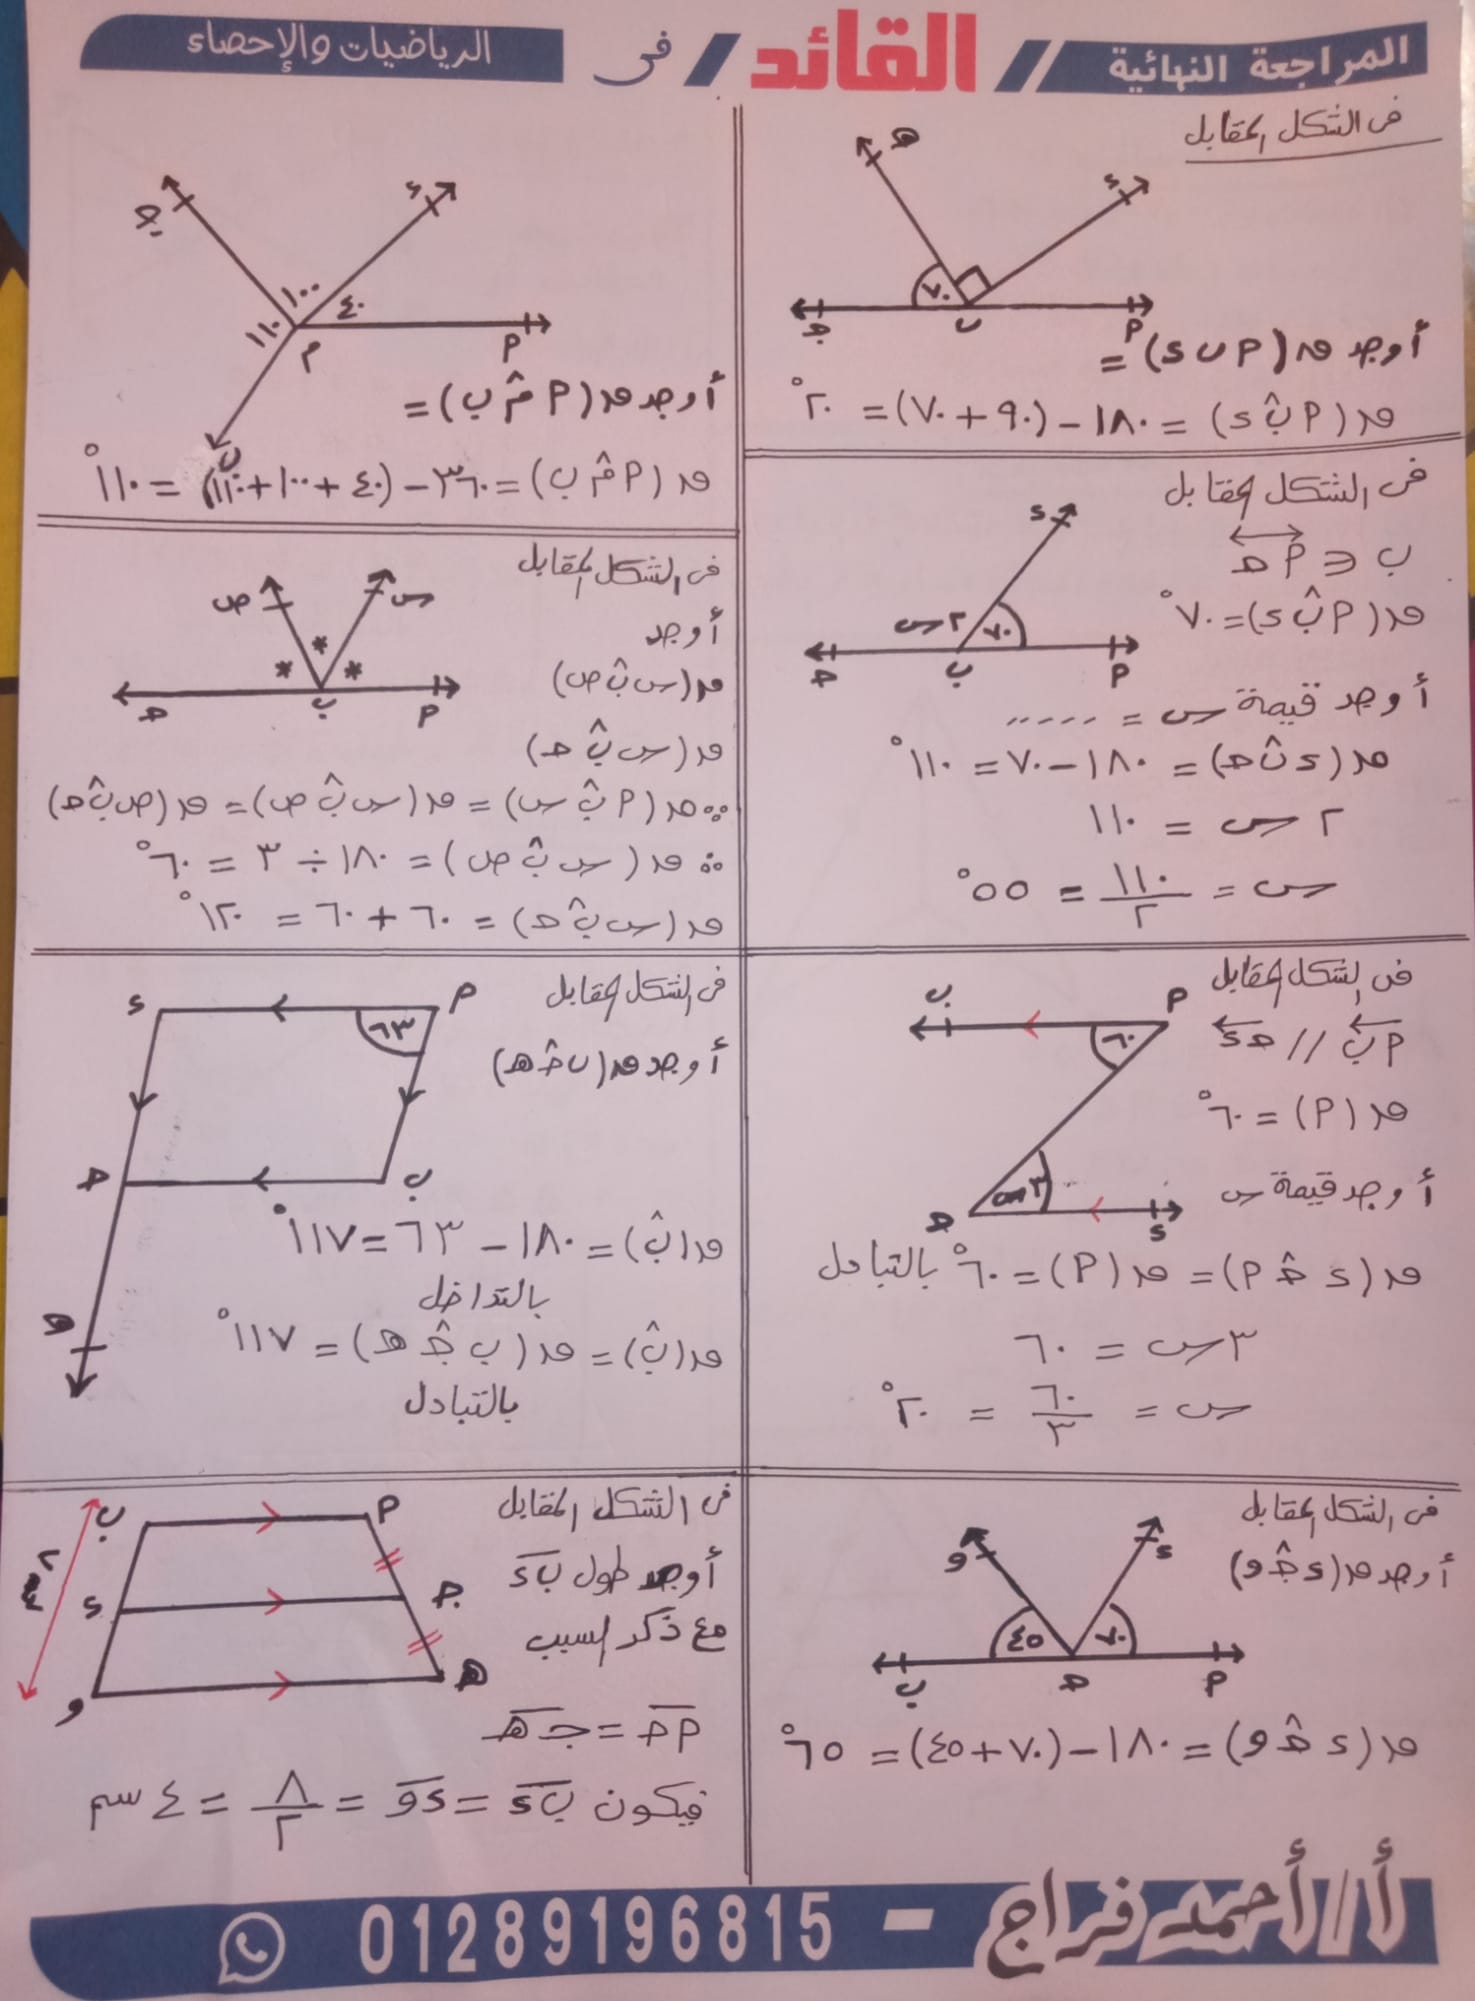 المراجعة النهائية // القائد / فى الرياضيات والإحصاء
فى الشكل المقابل
هـ
ء
٧٠
جـ
ب
أ
أوجد ق(أ ب ء) =
ق(أ ب̂ ء) = ١٨٠ − (٩٠ + ٧٠) = ٢٠°
جـ
ء
١٠٠
٤٠
١١٠
م
أ
ب
أوجد ق(أ م̂ ب) =
ق(أ م̂ ب) = ٣٦٠ − (٤٠ + ١٠٠ + ١١٠) = ١١٠°
فى الشكل المقابل
ب ∈ أ جـ
ق(أ ب̂ ء) = ٧٠°
ء
٢س
٧٠
جـ
ب
أ
أوجد قيمة س = .....
ق(ء ب̂ جـ) = ١٨٠ − ٧٠ = ١١٠°
٢س = ١١٠
س = ١١٠/٢ = ٥٥°
فى الشكل المقابل
أوجد
ق(س ب̂ ص)
ق(س ب̂ جـ)
ص
س
* * *
جـ
ب
أ
∵ ق(أ ب̂ س) = ق(س ب̂ ص) = ق(ص ب̂ جـ)
∴ ق(س ب̂ ص) = ١٨٠ ÷ ٣ = ٦٠°
ق(س ب̂ جـ) = ٦٠ + ٦٠ = ١٢٠°
فى الشكل المقابل
أ ب // جـ ء
ق(أ) = ٦٠°
أوجد قيمة س
ب
أ
٦٠
٣س
جـ
ء
ق(ء جـ̂ أ) = ق(أ) = ٦٠° بالتبادل
٣س = ٦٠
س = ٦٠/٣ = ٢٠°
فى الشكل المقابل
أوجد ق(ب جـ̂ هـ)
ء
أ
٦٣
جـ
ب
هـ
ق(ب̂) = ١٨٠ − ٦٣ = ١١٧°
بالتداخل
ق(ب̂) = ق(ب جـ̂ هـ) = ١١٧°
بالتبادل
فى الشكل المقابل
أوجد ق(ء جـ̂ و)
و
ء
٤٥
٧٠
ب
جـ
أ
ق(ء جـ̂ و) = ١٨٠ − (٧٠ + ٤٥) = ٦٥°
فى الشكل المقابل
أوجد طول ب ء
مع ذكر السبب
ب
أ
ء
جـ
و
هـ
أ جـ = جـ هـ
فيكون ب ء = ء و = ٨/٢ = ٤ سم
أ/أحمد فراج - 01289196815